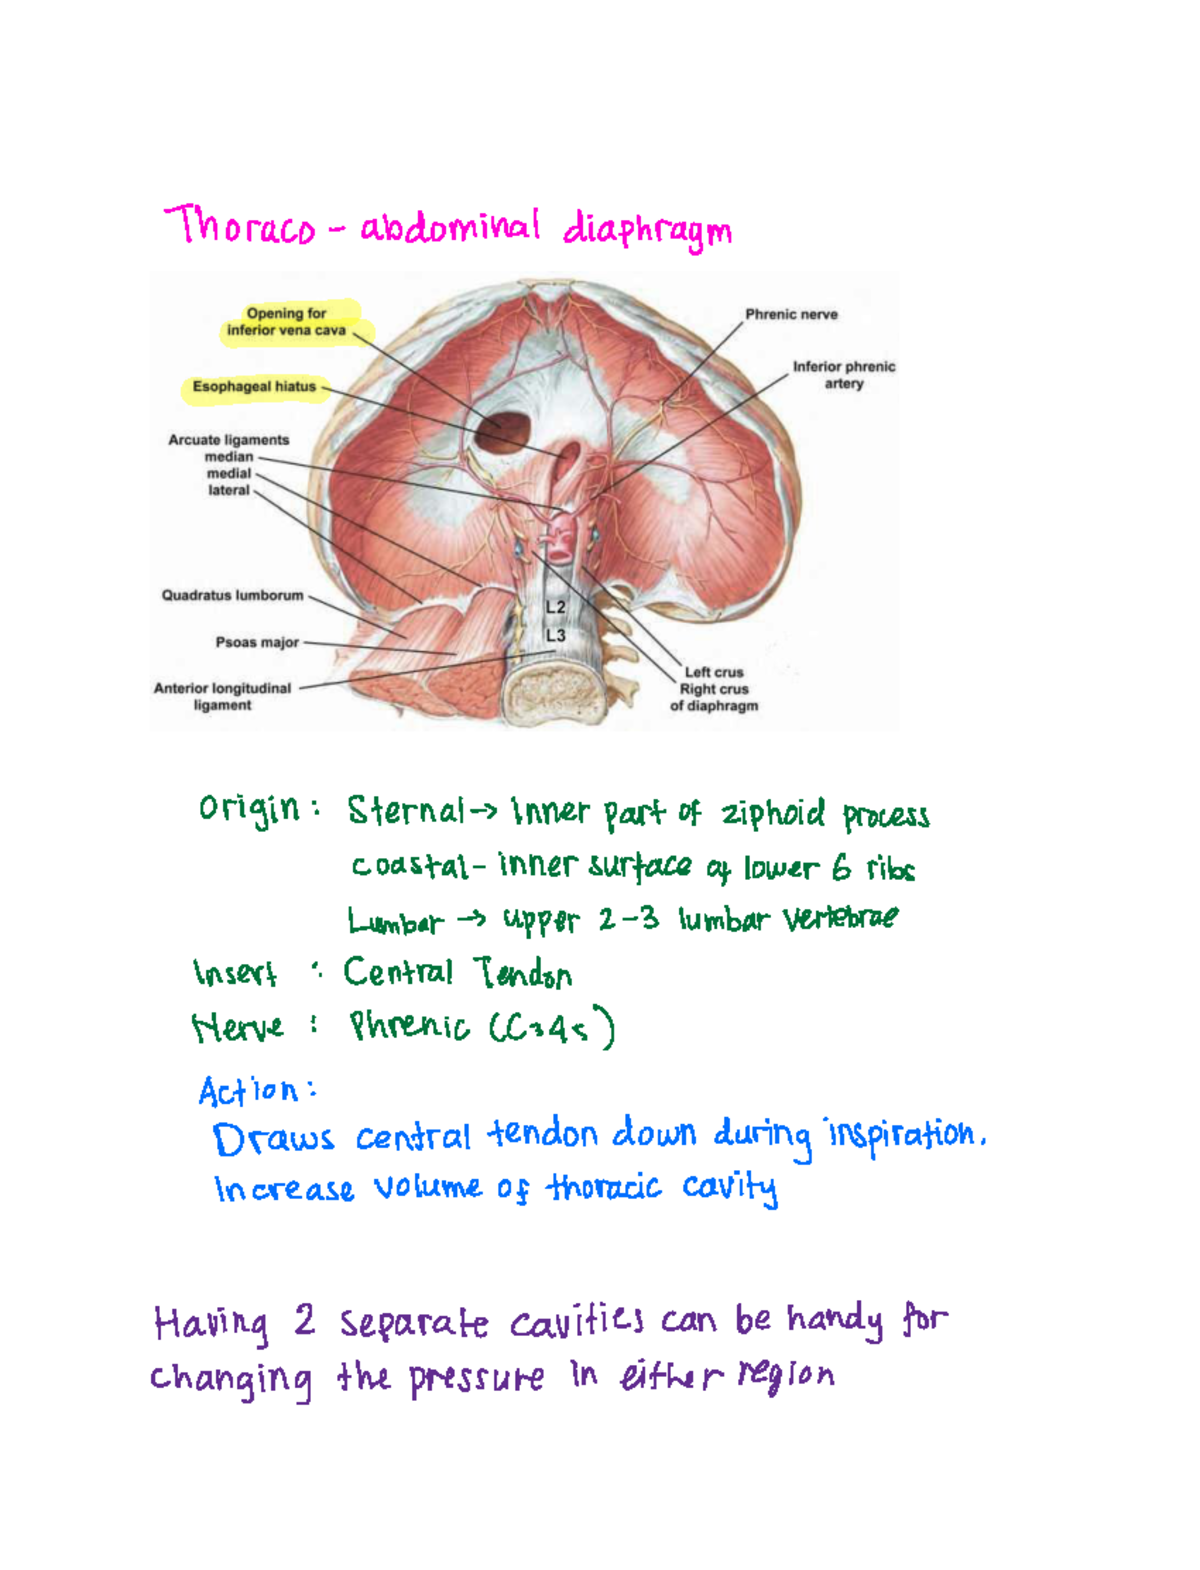 Thoraco - abdominal diaphragm
Opening for
inferior vena cava
Esophageal hiatus
Arcuate ligaments
median
medial
lateral
Quadratus lumborum
Psoas major
Anterior longitudinal
ligament
Phrenic nerve
Inferior phrenic
artery
L2
L3
Left crus
Right crus
of diaphragm
Origin: Sternal → inner part of ziphoid process
coastal - inner surface of lower 6 ribs
Lumbar → upper 2-3 lumbar vertebrae
Insert : Central Tendon
Nerve : Phrenic (C345)
Action:
Draws central tendon down during inspiration.
Increase volume of thoracic cavity
Having 2 separate cavities can be handy for
changing the pressure in either region